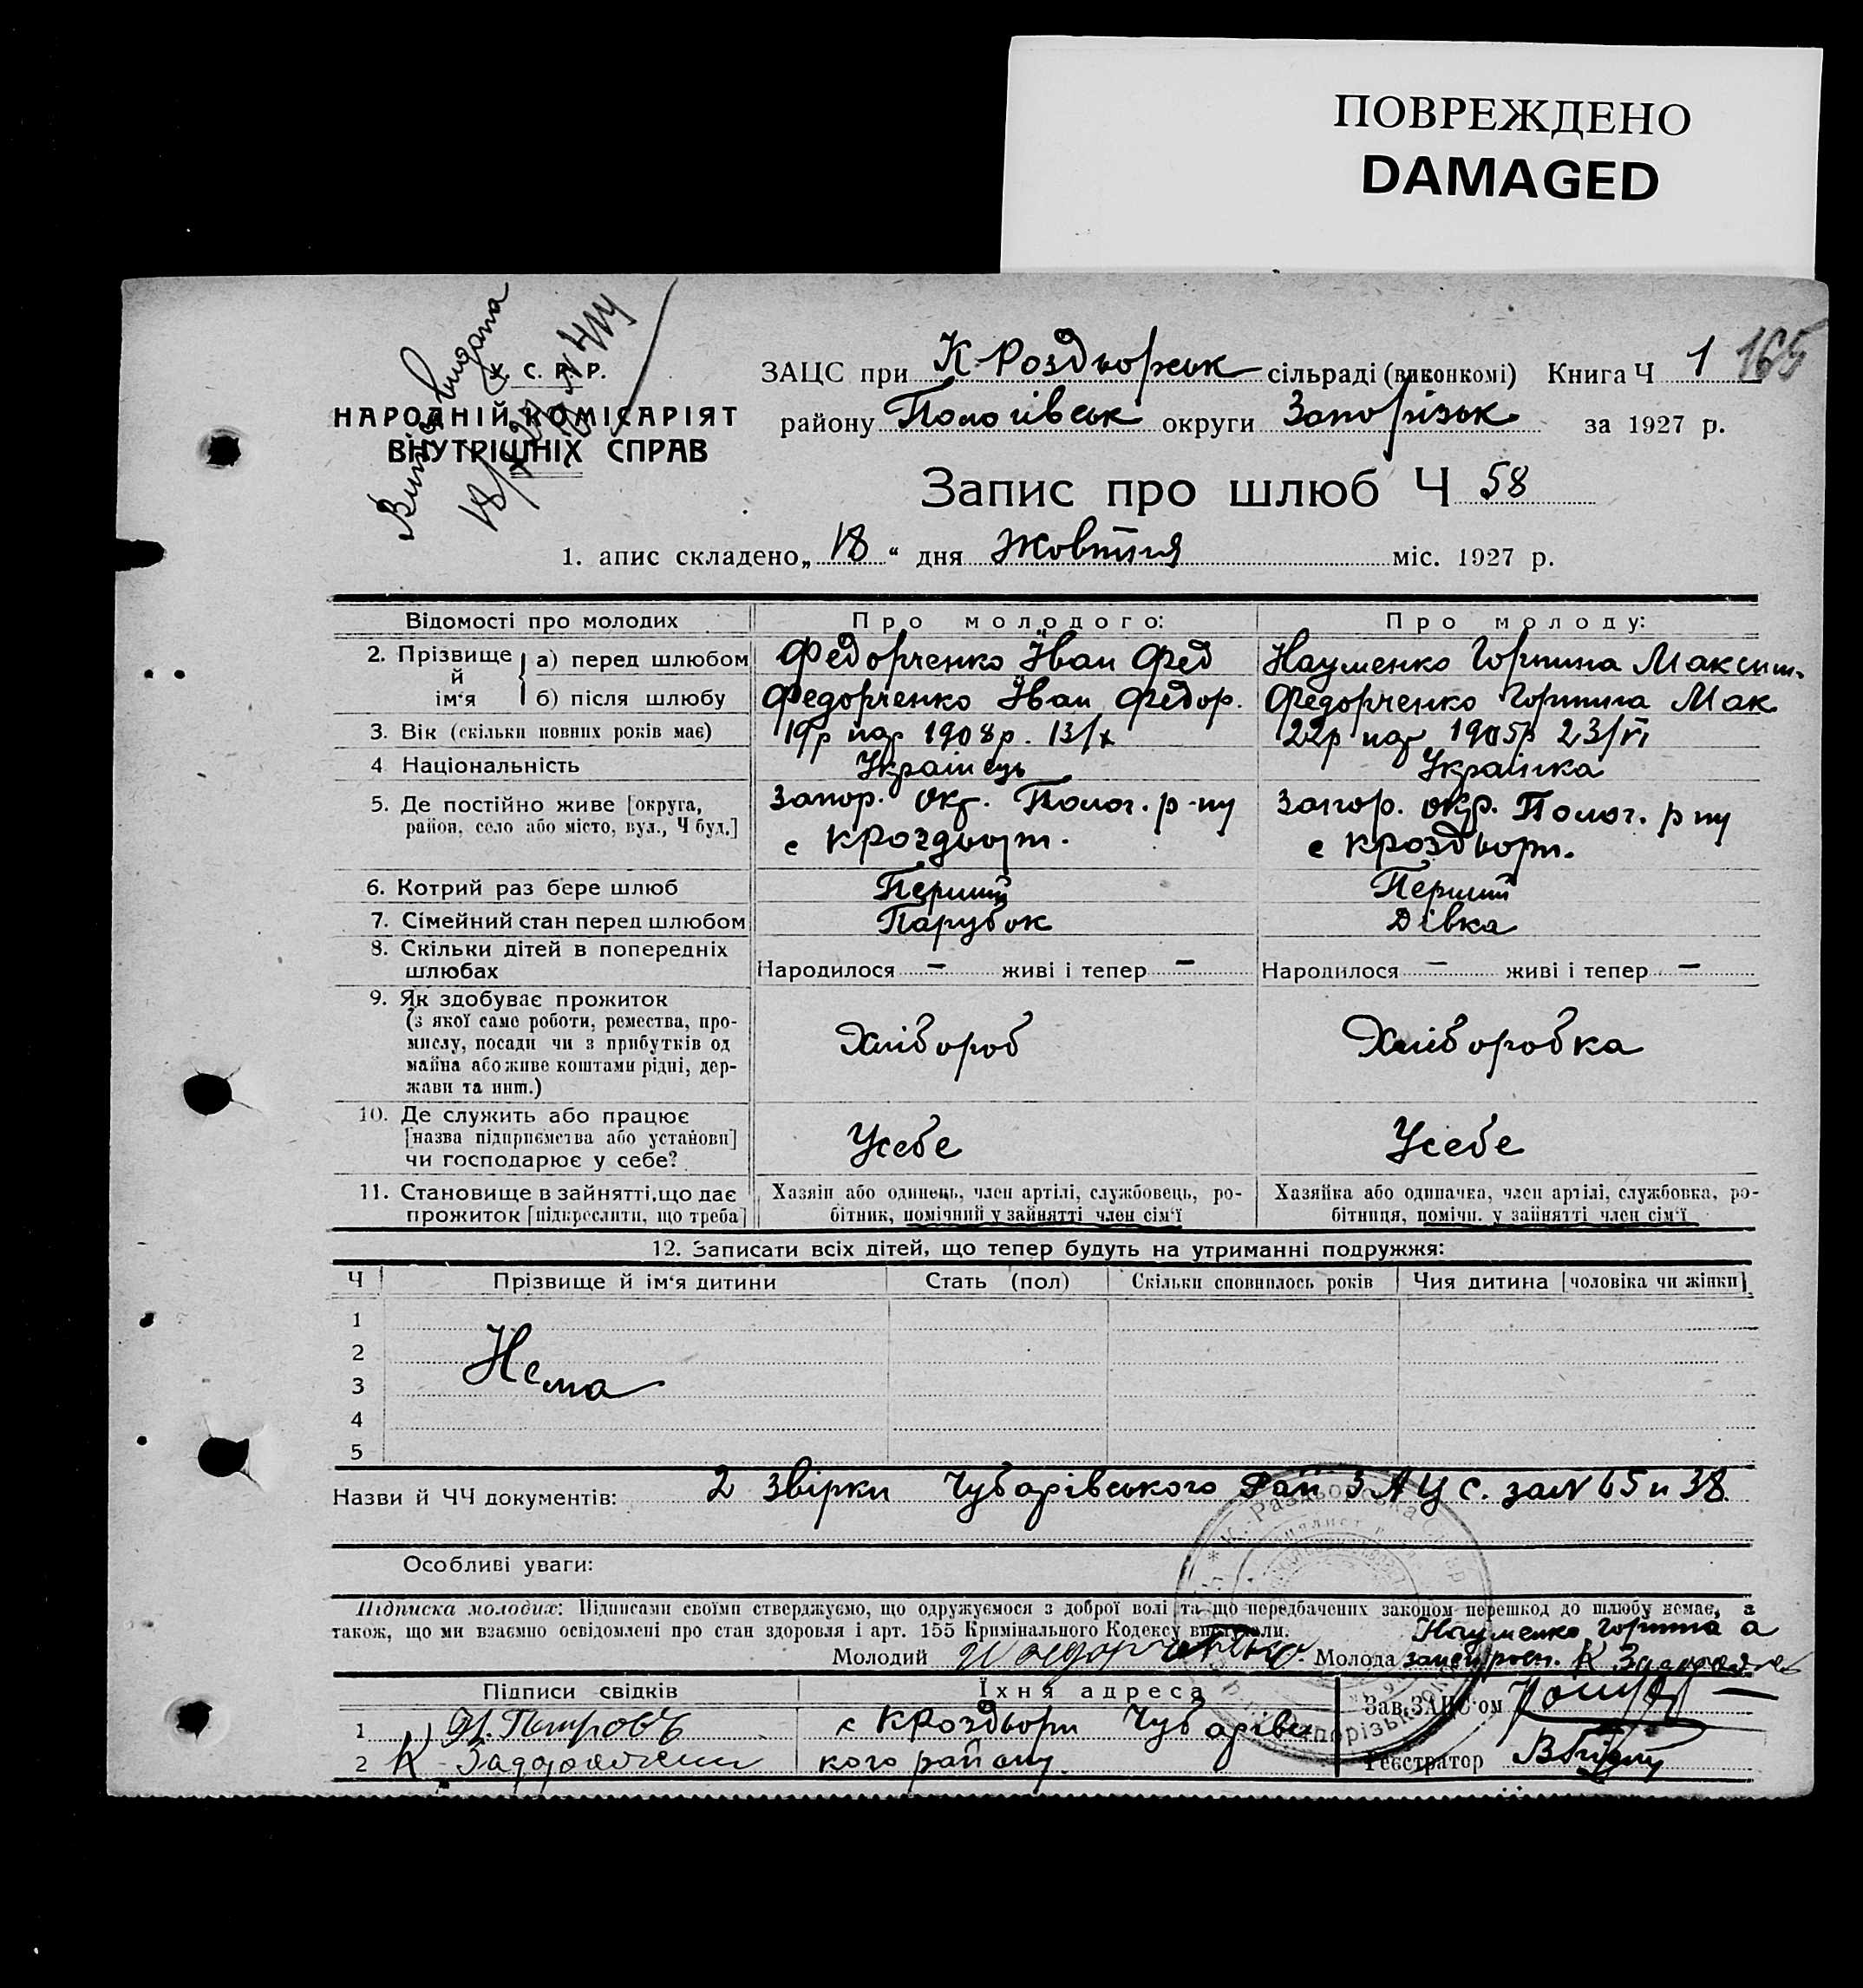 ПОВРЕЖДЕНО
DAMAGED
Виписка видана
18/X 27 № 414
У. С. Р. Р.
НАРОДНІЙ КОМІСАРІЯТ
ВНУТРІШНІХ СПРАВ
ЗАЦС при К-Роздорськ сільраді (виконкомі) Книга Ч 1 165
району Пологівськ округи Запорізьк за 1927 р.
Запис про шлюб Ч 58
1. апис складено „ 18 “ дня Жовтня міс. 1927 р.
Відомості про молодих Про молодого: Про молоду:
2. Прізвище й ім‘я
а) перед шлюбом Федорченко Іван Фед Науменко Горпина Максим.
б) після шлюбу Федорченко Іван Федор. Федорченко Горпина Мак
3. Вік (скільки повних років має) 19р нар 1908р. 13/X 22р нар 1905р 23/VI
4 Національність Українець Українка
5. Де постійно живе [округа,
район, село або місто, вул., Ч буд.]
Запор. окр. Полог. р-ну Запор. окр. Полог. р ну
с КРоздьорт. с КРоздьорт.
6. Котрий раз бере шлюб Перший Перший
7. Сімейний стан перед шлюбом Парубок Дівка
8. Скільки дітей в попередніх
шлюбах Народилося — живі і тепер — Народилося — живі і тепер —
9. Як здобуває прожиток
(з якої саме роботи, ремества, про-
мислу, посади чи з прибутків од
майна або живе коштами рідні, дер-
жави та инш.)
Хлібороб Хліборобка
10. Де служить або працює
[назва підприємства або установи]
чи господарює у себе?
Усебе Усебе
11. Становище в зайнятті, що дає
прожиток [підкреслити, що треба]
Хазяїн або одинець, член артілі, службовець, ро-
бітник, помічний у зайнятті член сім‘ї
Хазяйка або одиначка, член артілі, службовка, ро-
бітниця, помічн. у зайнятті член сім‘ї
12. Записати всіх дітей, що тепер будуть на утриманні подружжя:
Ч Прізвище й ім‘я дитини Стать (пол) Скільки сповнилось років Чия дитина [чоловіка чи жінки]
1
2 Нема
3
4
5
Назви й ЧЧ документів: 2 звірки Чубарівського Рай ЗАЦС. за № 65 и 38
Особливі уваги:
Підписка молодих: Підписами своїми стверджуємо, що одружуємося з доброї волі та що передбачених законом перешкод до шлюбу немає, а
також, що ми взаємно освідомлені про стан здоровля і арт. 155 Кримінального Кодексу вислухали.
Науменко Горпина а
Молодий Федорченко Молода К Задорожній
Підписи свідків Їхня адреса Зав. ЗАЦС‘ом
1 Петровъ с КРоздьори Чубарівсь
2 К Задорожній кого району. Реєстратор